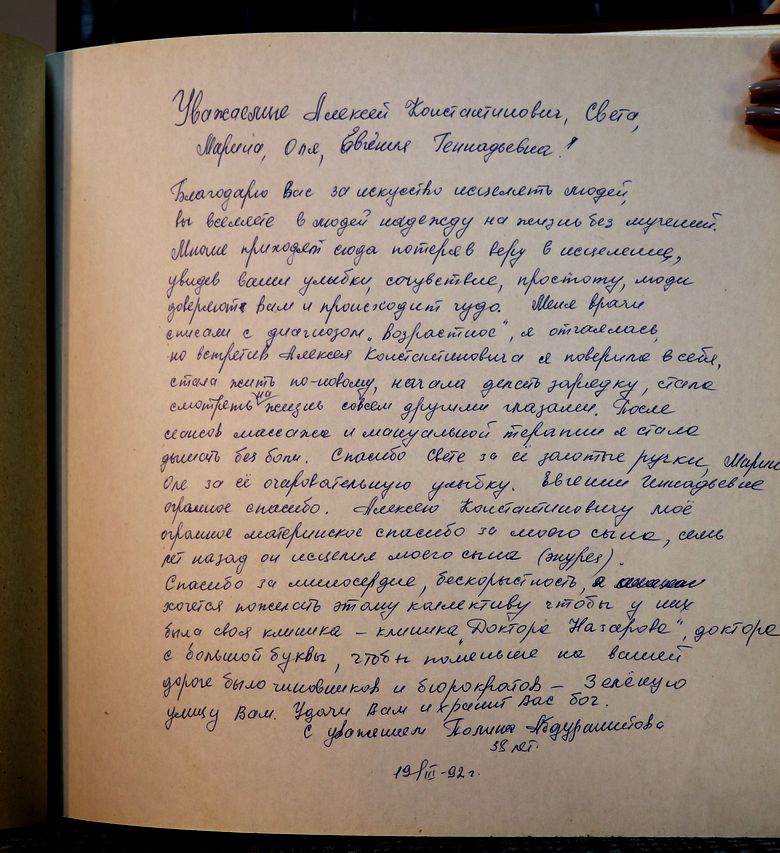 Уважаемые Алексей Константинович, Света,
Марина, Оля, Евгения Геннадьевна!
Благодарю Вас за искусство исцелять людей,
вы вселяете в людей надежду на жизнь без мучений.
Многие приходят сюда потеряв веру в исцеление,
увидев ваши улыбки, сочувствие, простоту, люди
доверяют Вам и происходит чудо. Меня врачи
списали с диагнозом „возрастное", я отчаялась,
но встретив Алексея Константиновича я поверила в себя,
стала жить по-новому, начала делать зарядку, стала
смотреть на жизнь совсем другими глазами. После
сеансов массажа и мануальной терапии я стала
дышать без боли. Спасибо Свете за её золотые ручки, Марине
Оле за её очаровательную улыбку. Евгении Геннадьевне
огромное спасибо. Алексею Константиновичу моё
огромное материнское спасибо за моего сына, семь
лет назад он исцелил моего сына (энурез).
Спасибо за милосердие, бескорыстность, а
хочется пожелать этому коллективу чтобы у них
была своя клиника – клиника „Доктора Назарова", доктора
с большой буквы, чтобы поменьше на вашей
дороге было чиновников и бюрократов – Зелёную
улицу Вам. Удачи Вам и хранит вас бог.
С уважением Полина Абдурашитова
38 лет.
19/III-92 г.